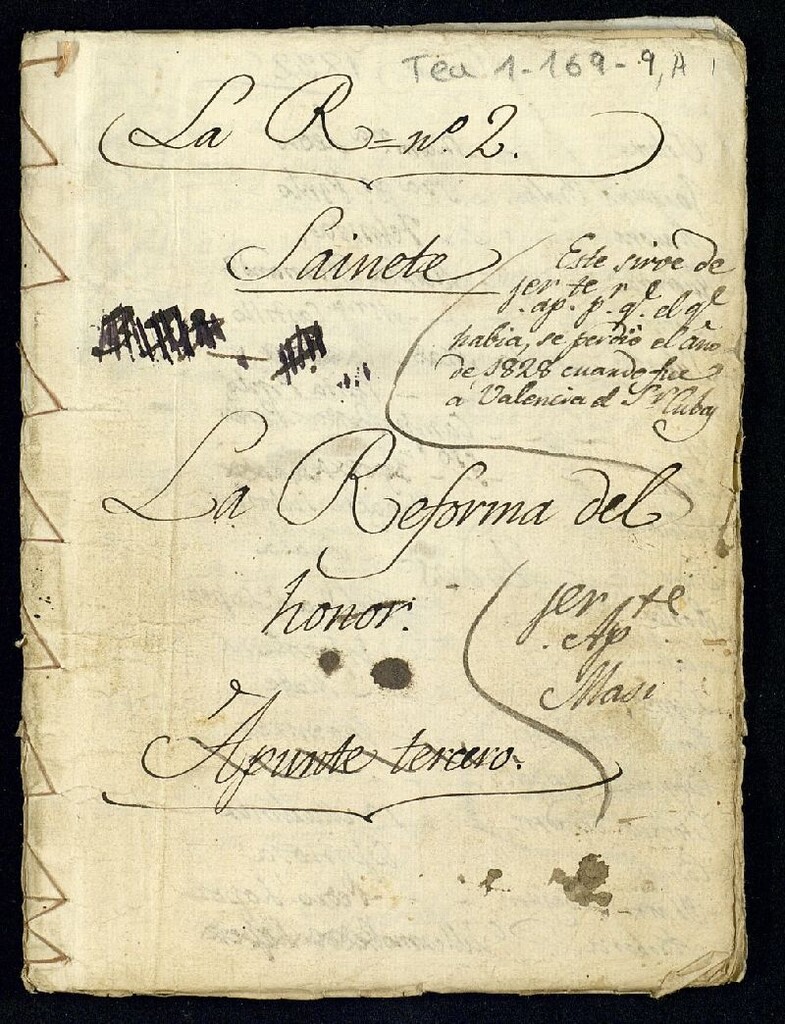 Tea 1-169-9, A
La R = nº. 2.
Sainete
Este sirve de
ap. p. q.e el q.e
habia, se perdió el año
de 1828 cuando fue
á Valencia el S.r Cubas
La Reforma del
honor.
Ap
Masi
Apunte tercero.